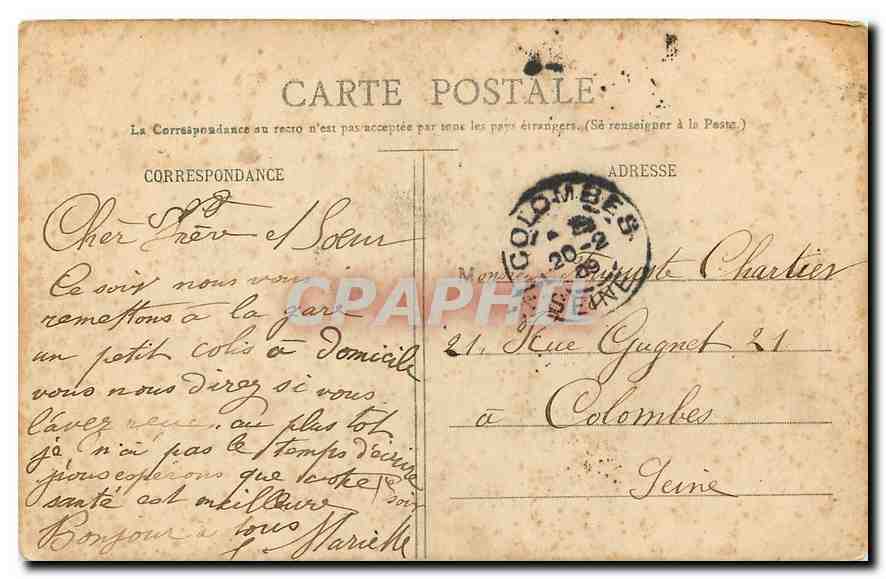 CARTE POSTALE
La Correspondance au recto n'est pas acceptée par tous les pays étrangers. (Se renseigner à la Poste.)
CORRESPONDANCE
ADRESSE
Chèr frère et Sœur
Ce soir nous vous
remettons à la gare
un petit colis à domicile
vous nous direz si vous
l'avez reçu. au plus tot
je n'ai pas le temps d'écrire
nous espérons que votre
santé est meilleure
Bonjour à tous
Mariette
ce soir
COLOMBES
20-2
SEINE
Monsieur Auguste Chartier
21, Rue Gugnet 21
à Colombes
Seine
CPAPHIL